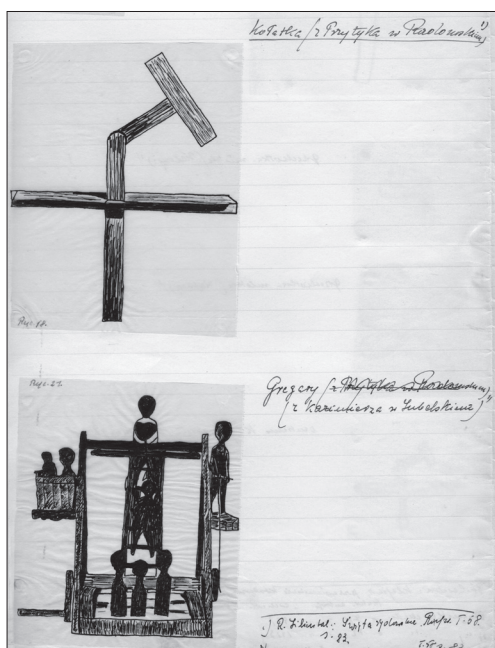 Kołatka (z Przytyka w Radomskiem) 1)
Ryc.
Ryc. 21.
Gregary (z Przytyka w Radomskiem) 1)
(z Kazimierza w Lubelskiem)
1) R. Liliental: Święta żydowskie, T. 
s. 83.